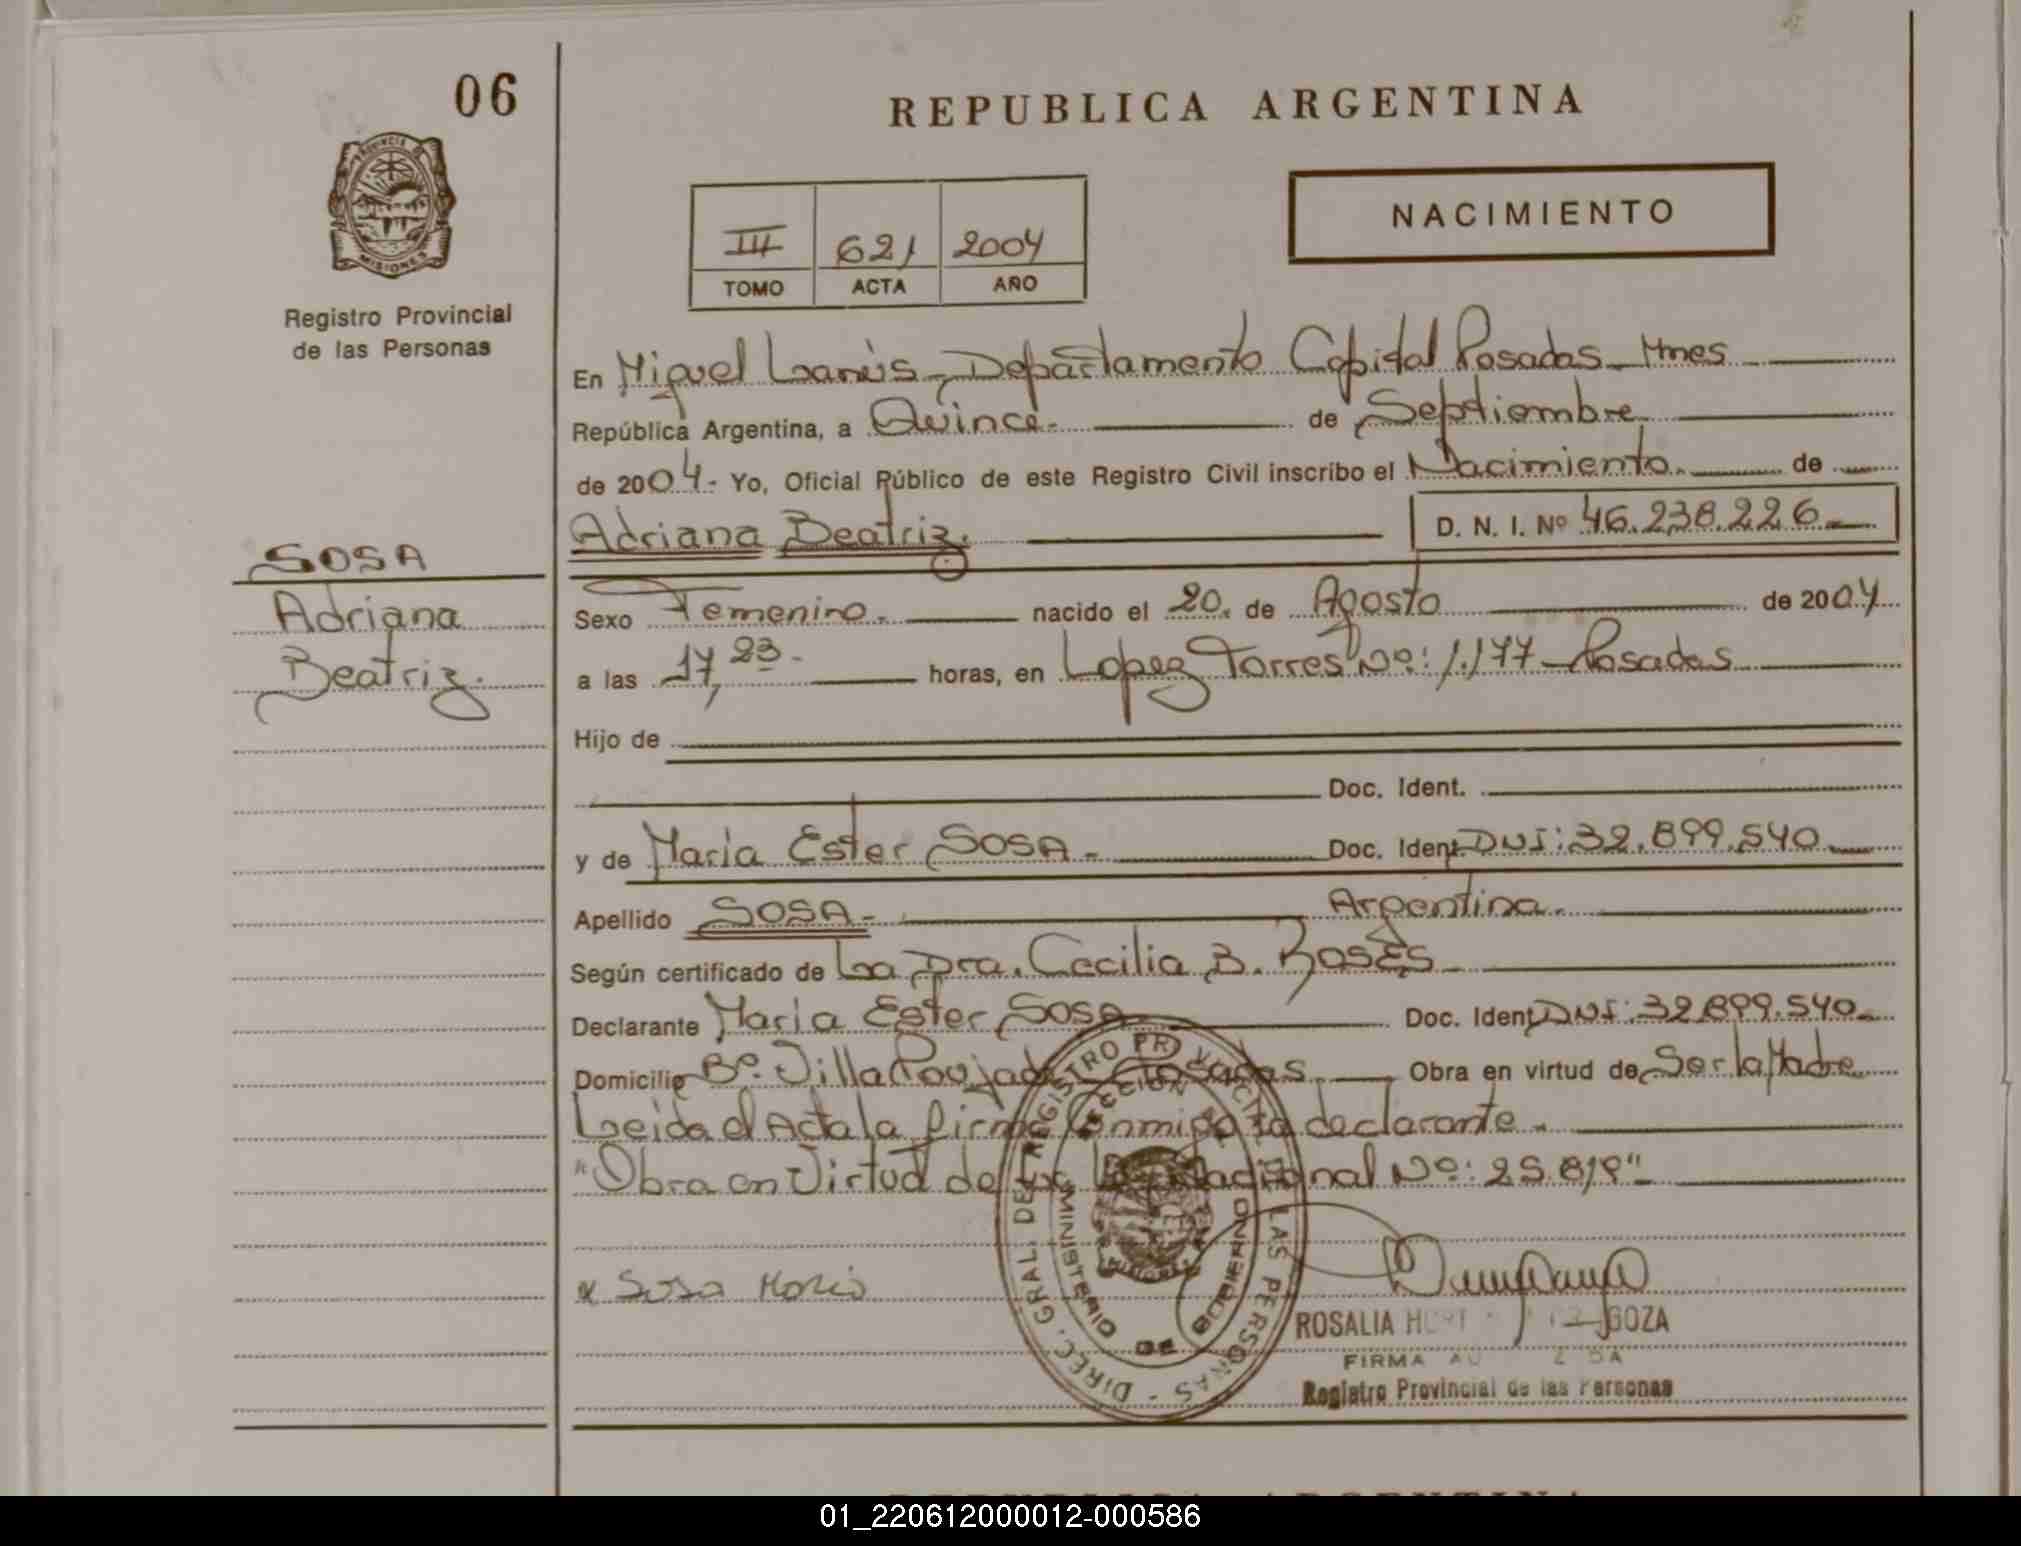 06
REPUBLICA ARGENTINA
PROVINCIA DE
MISIONES
Registro Provincial
de las Personas
III 621 2004
TOMO ACTA AÑO
NACIMIENTO
En Miguel Lanús - Departamento Capital Posadas - Mnes
República Argentina, a Quince. de Septiembre
de 2004.- Yo, Oficial Público de este Registro Civil inscribo el Nacimiento. de
Adriana Beatriz. D. N. I. Nº 46.238.226.-
SOSA
Adriana
Beatriz.
Sexo Femenino. nacido el 20. de Agosto de 2004
a las 17,23.- horas, en Lopez Torres Nº: 1.177 - Posadas
Hijo de
Doc. Ident.
y de Maria Ester SOSA.- Doc. Ident. DNI: 32.899.540.
Apellido SOSA.- Argentina.
Según certificado de La Dra. Cecilia B. Rosés
Declarante Maria Ester Sosa Doc. Ident. DNI: 32.899.540.
Domicilio Bº. Villa Poujade - Posadas. Obra en virtud de Ser la Madre
Leida el Acta la firma Conmigo la declarante.
"Obra en Virtud de la Ley Nacional Nº: 25.819"
x Sosa Maria
DIREC. GRAL. DE REGISTRO PROVINCIAL DE LAS PERSONAS -
MINISTERIO DE GOBIERNO
MISIONES
ROSALIA GOZA
FIRMA
Registro Provincial de las Personas
REPUBLICA ARGENTINA
01_220612000012-000586